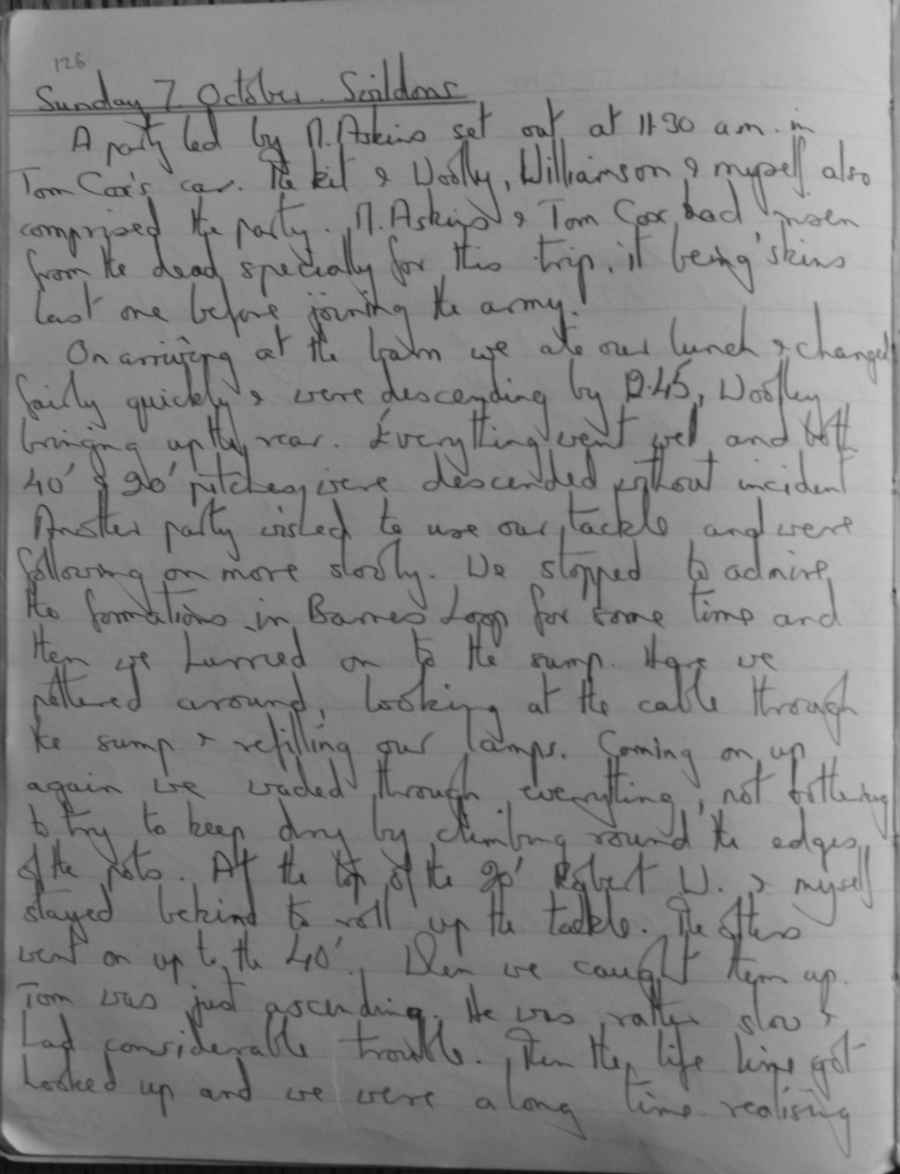 126
Sunday 7 October. Swildons
A party led by M. Askins set out at 11.30 a.m. in
Tom Cox's car. The kit & Woolly, Williamson & myself also
comprised the party. M. Askins & Tom Cox had risen
from the dead specially for this trip, it being 'skins
last one before joining the army!
On arriving at the barn we ate our lunch & changed
fairly quickly & were descending by 12.45, Woolley
bringing up the rear. Everything went well and both
40' & 20' pitches were descended without incident
Another party wished to use our tackle and were
following on more slowly. We stopped to admire
the formations in Barnes Loop for some time and
then we hurried on to the sump. Here we
pottered around, looking at the cable through
the sump & refilling our lamps. Coming on up
again we waded through everything, not bothering
to try to keep dry by climbing round the edges
of the pots. At the top of the 20' Robert W. & myself
stayed behind to roll up the tackle. The others
went on up to the 40'. When we caught them up
Tom was just ascending. He was rather slow &
had considerable trouble. Then the life line got
hooked up and we were a long time realising